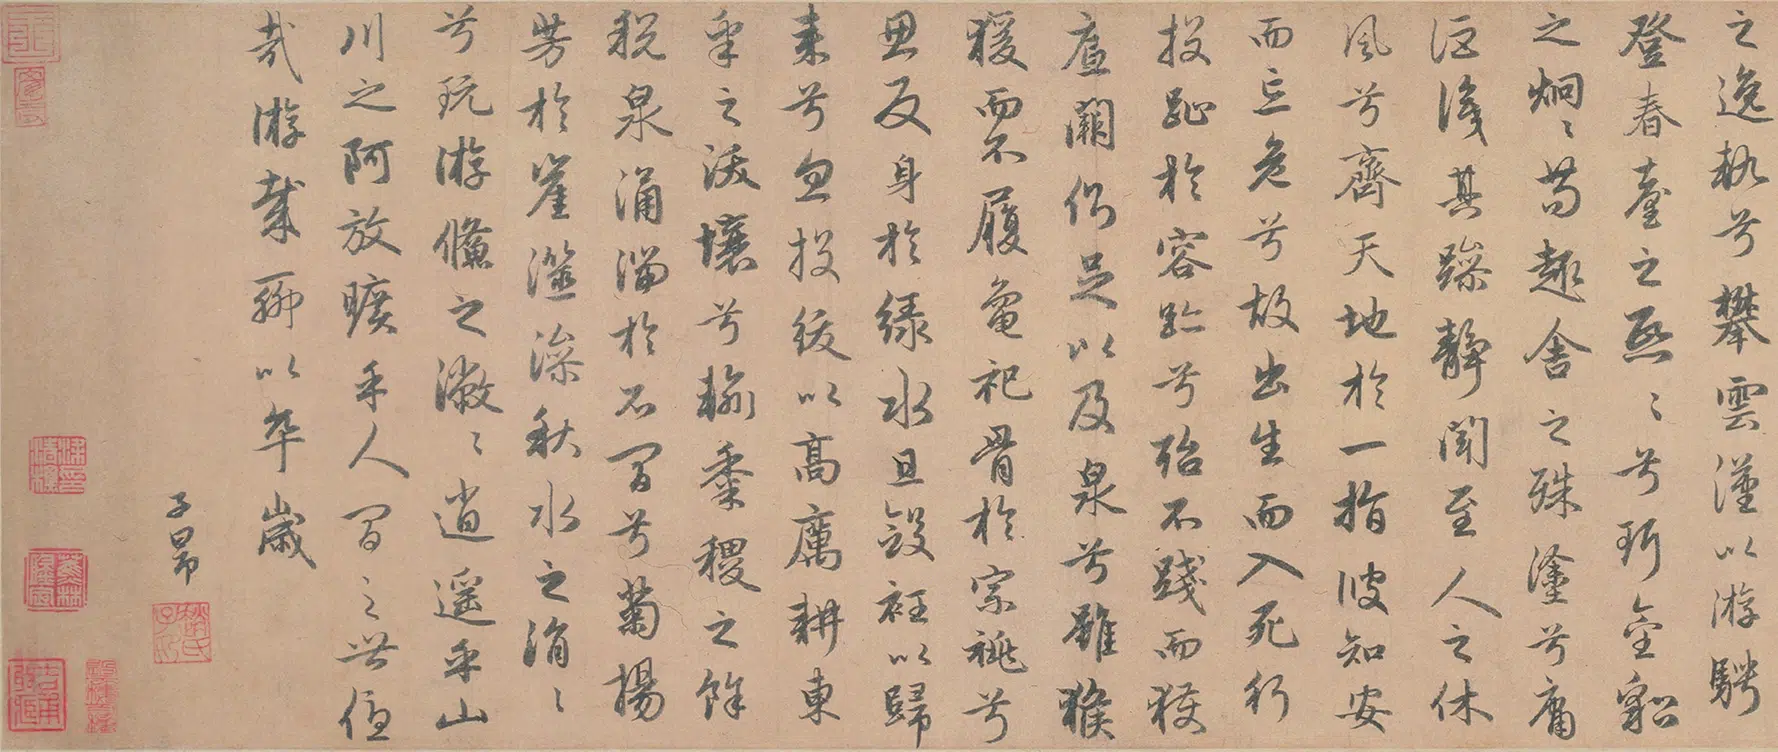 之逸執兮攀雲漢以游騁
登春臺之熙〻兮珥金貂
之炯〻苟趣舍之殊塗兮庸
詎識其躁靜聞至人之休
風兮齊天地於一指彼知安
而忘危兮故出生而入死行
投趾於容跡兮殆不踐而獲
底闕側足以及泉兮雖猴
猨而不履龜祀骨於宗祧兮
思反身於綠水且斂衽以歸
来兮忽投紱以高厲耕東
皋之沃壤兮輸黍稷之餘
稅泉涌湍於石間兮菊揚
芳於崖澨澡秋水之涓〻
兮玩游鯈之潎〻逍遙乎山
川之阿放曠乎人間之世優
哉游哉聊以卒歲
子昂
趙氏子昂